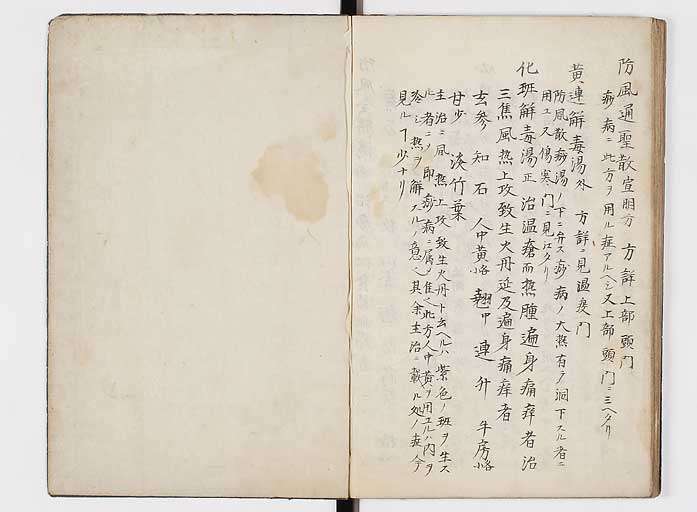 防風通聖散宣明方 方詳上部頭門
痧病ニ此方ヲ用ル症アルヘシ又上部頭門ニ三ヘタリ
黄連解毒湯外 方詳ニ見温疫門
防風散痧湯ノ下ニ弁ス痧病ノ大熱有テ洞下スル者ニ
用ユ又傷寒門ニ見江タリ
化班解毒湯正 治温瘡而熱腫遍身痛痒者治
三焦風熱上攻致生火丹延及遍身痛痒者
玄参 知 石 人中黄 翹 連 升 牛房
甘少 淡竹葉
主治ニ風熱上攻致生火丹ト云ヘルハ紫色ノ班ヲ生ス
ル者ニノ即痧病ニ属ノ 此方人中黄ヲ用ユルハ内ヲ
冷シ熱ヲ解スルノ意 其余主治ニ載ル処ノ症今
見ルヿ少ナリ